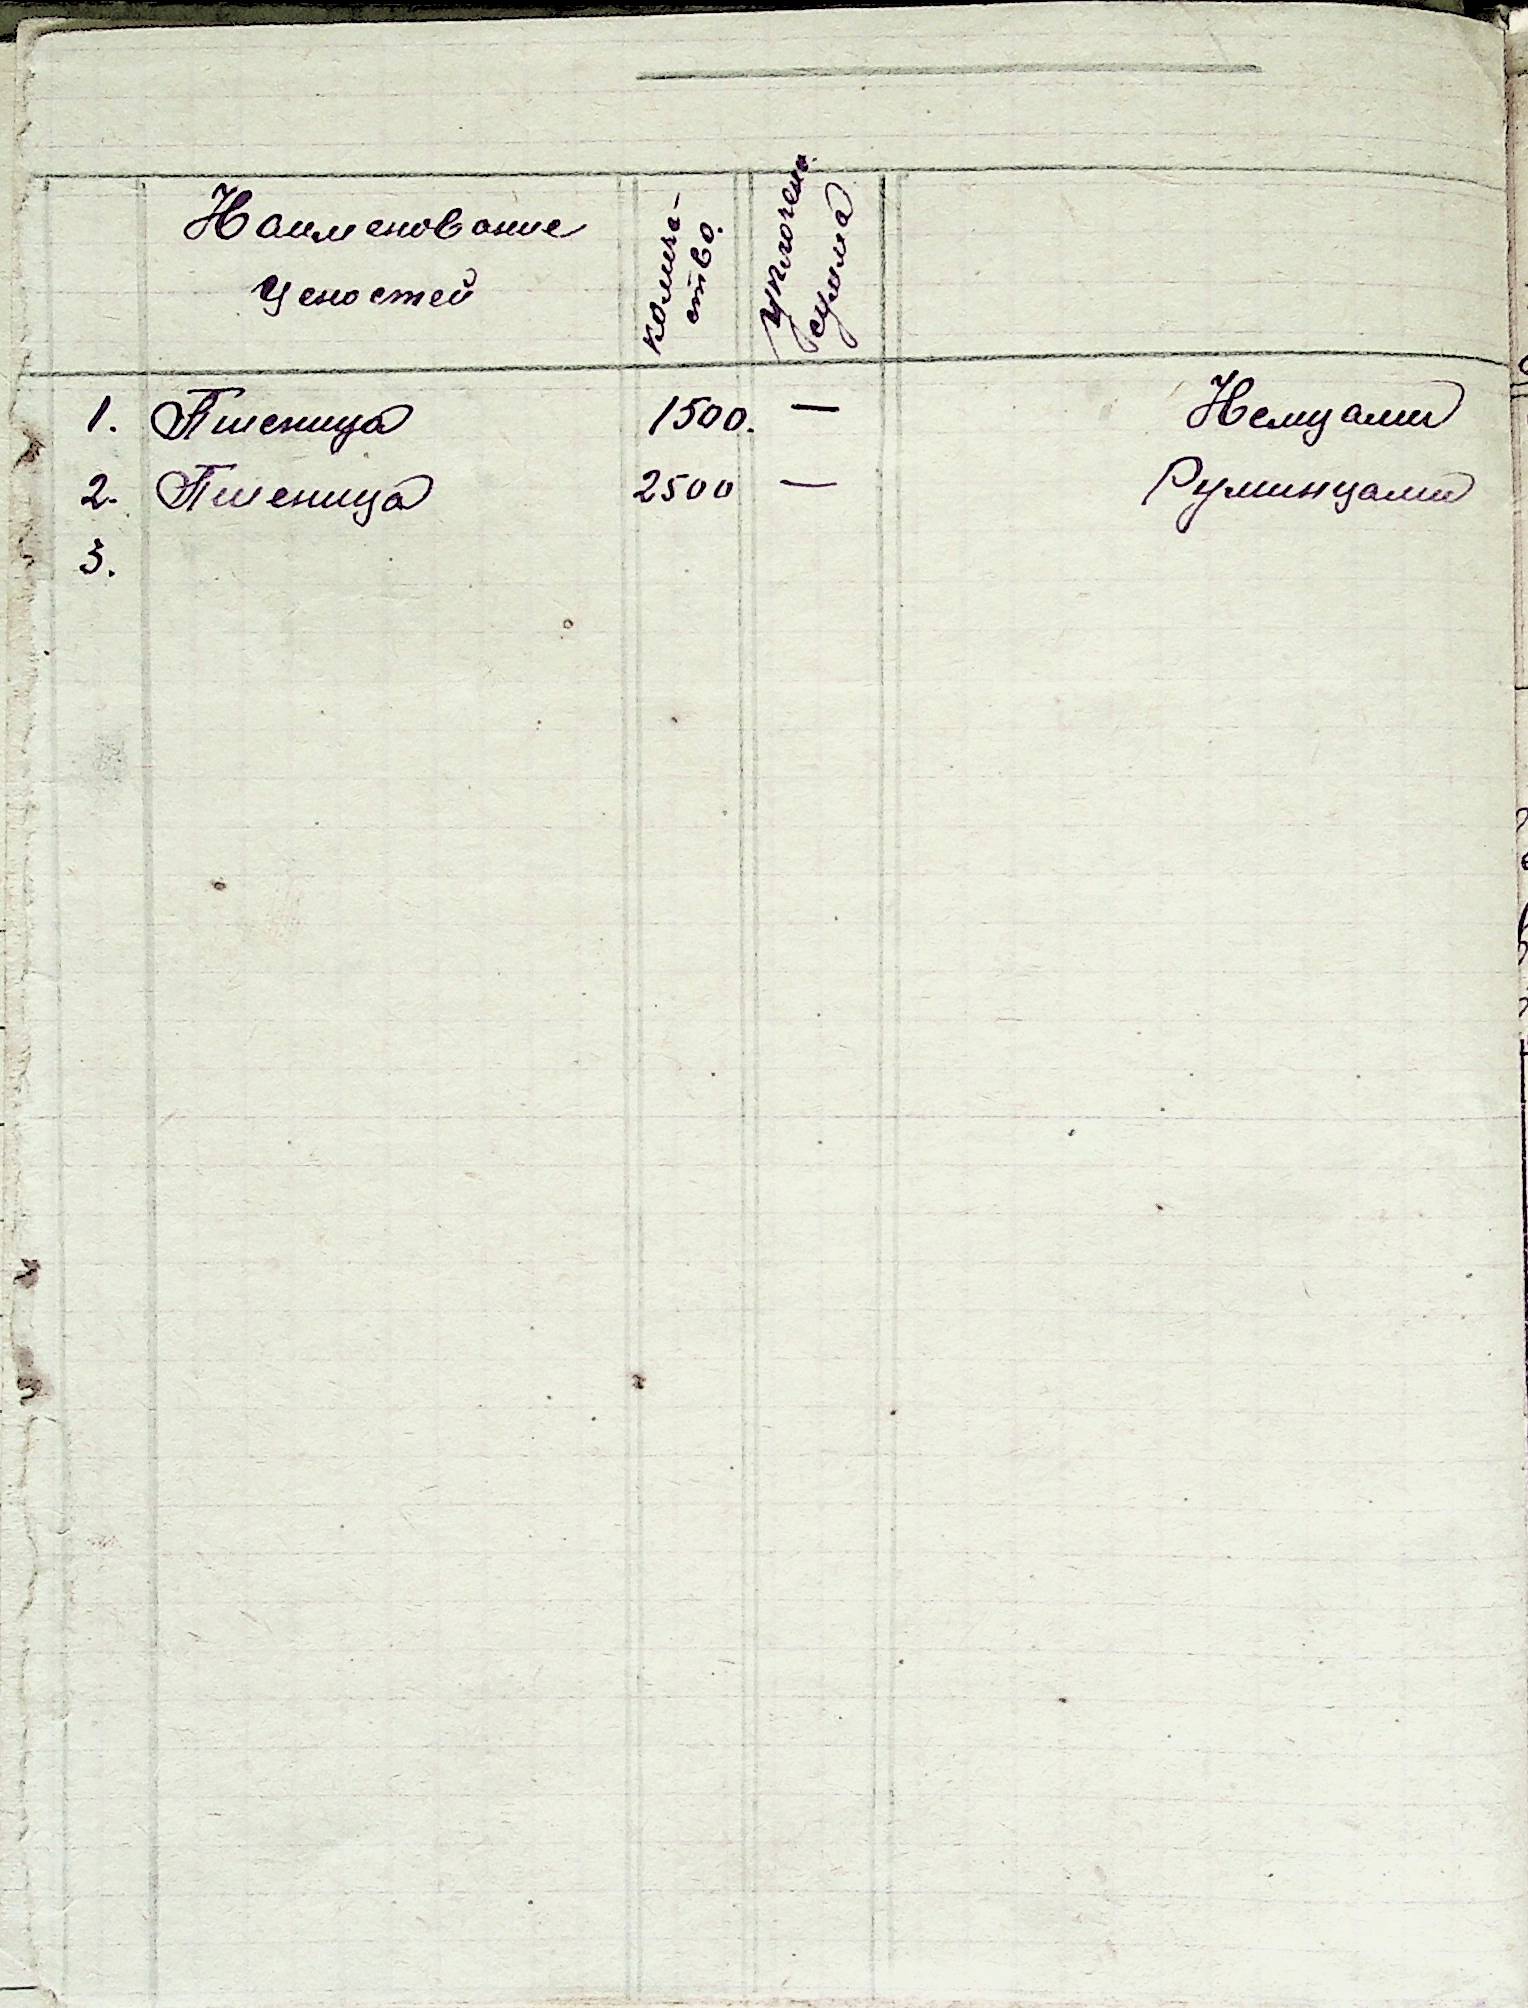 Наименование
Ценостей
количе-
ство.
уплочена.
сумма
1. Пшеница 1500. — Немцами
2. Пшеница 2500 — Руминцами
3.